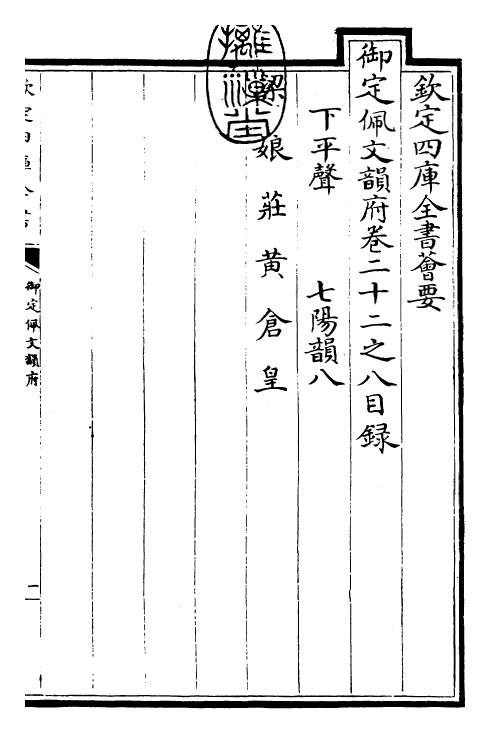 欽定四庫全書薈要
御定佩文韻府卷二十二之八目錄
下平聲　七陽韻八
娘　莊　黃　倉　皇
欽定四庫全書
御定佩文韻府
一
摛藻堂